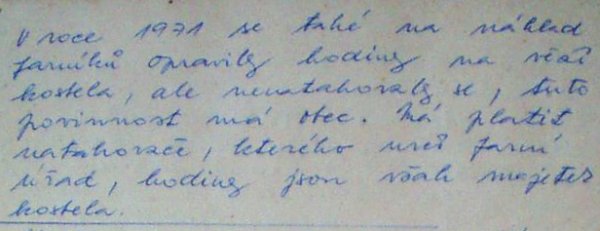 V roce 1971 se také na náklad
farníků opravily hodiny na věži
kostela, ale nenatahovaly se, tuto
povinnost má obec. Má platit
natahovače, kterého určí farní
úřad, hodiny jsou však majetek
kostela.